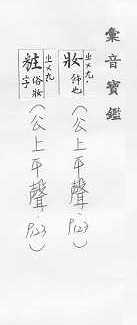 彙音寶鑑
ㄓㄨㄤ.
妝 飾也
(公上平聲.P123)
ㄓㄨㄤ.
粧 俗妝字
(公上平聲.P123)